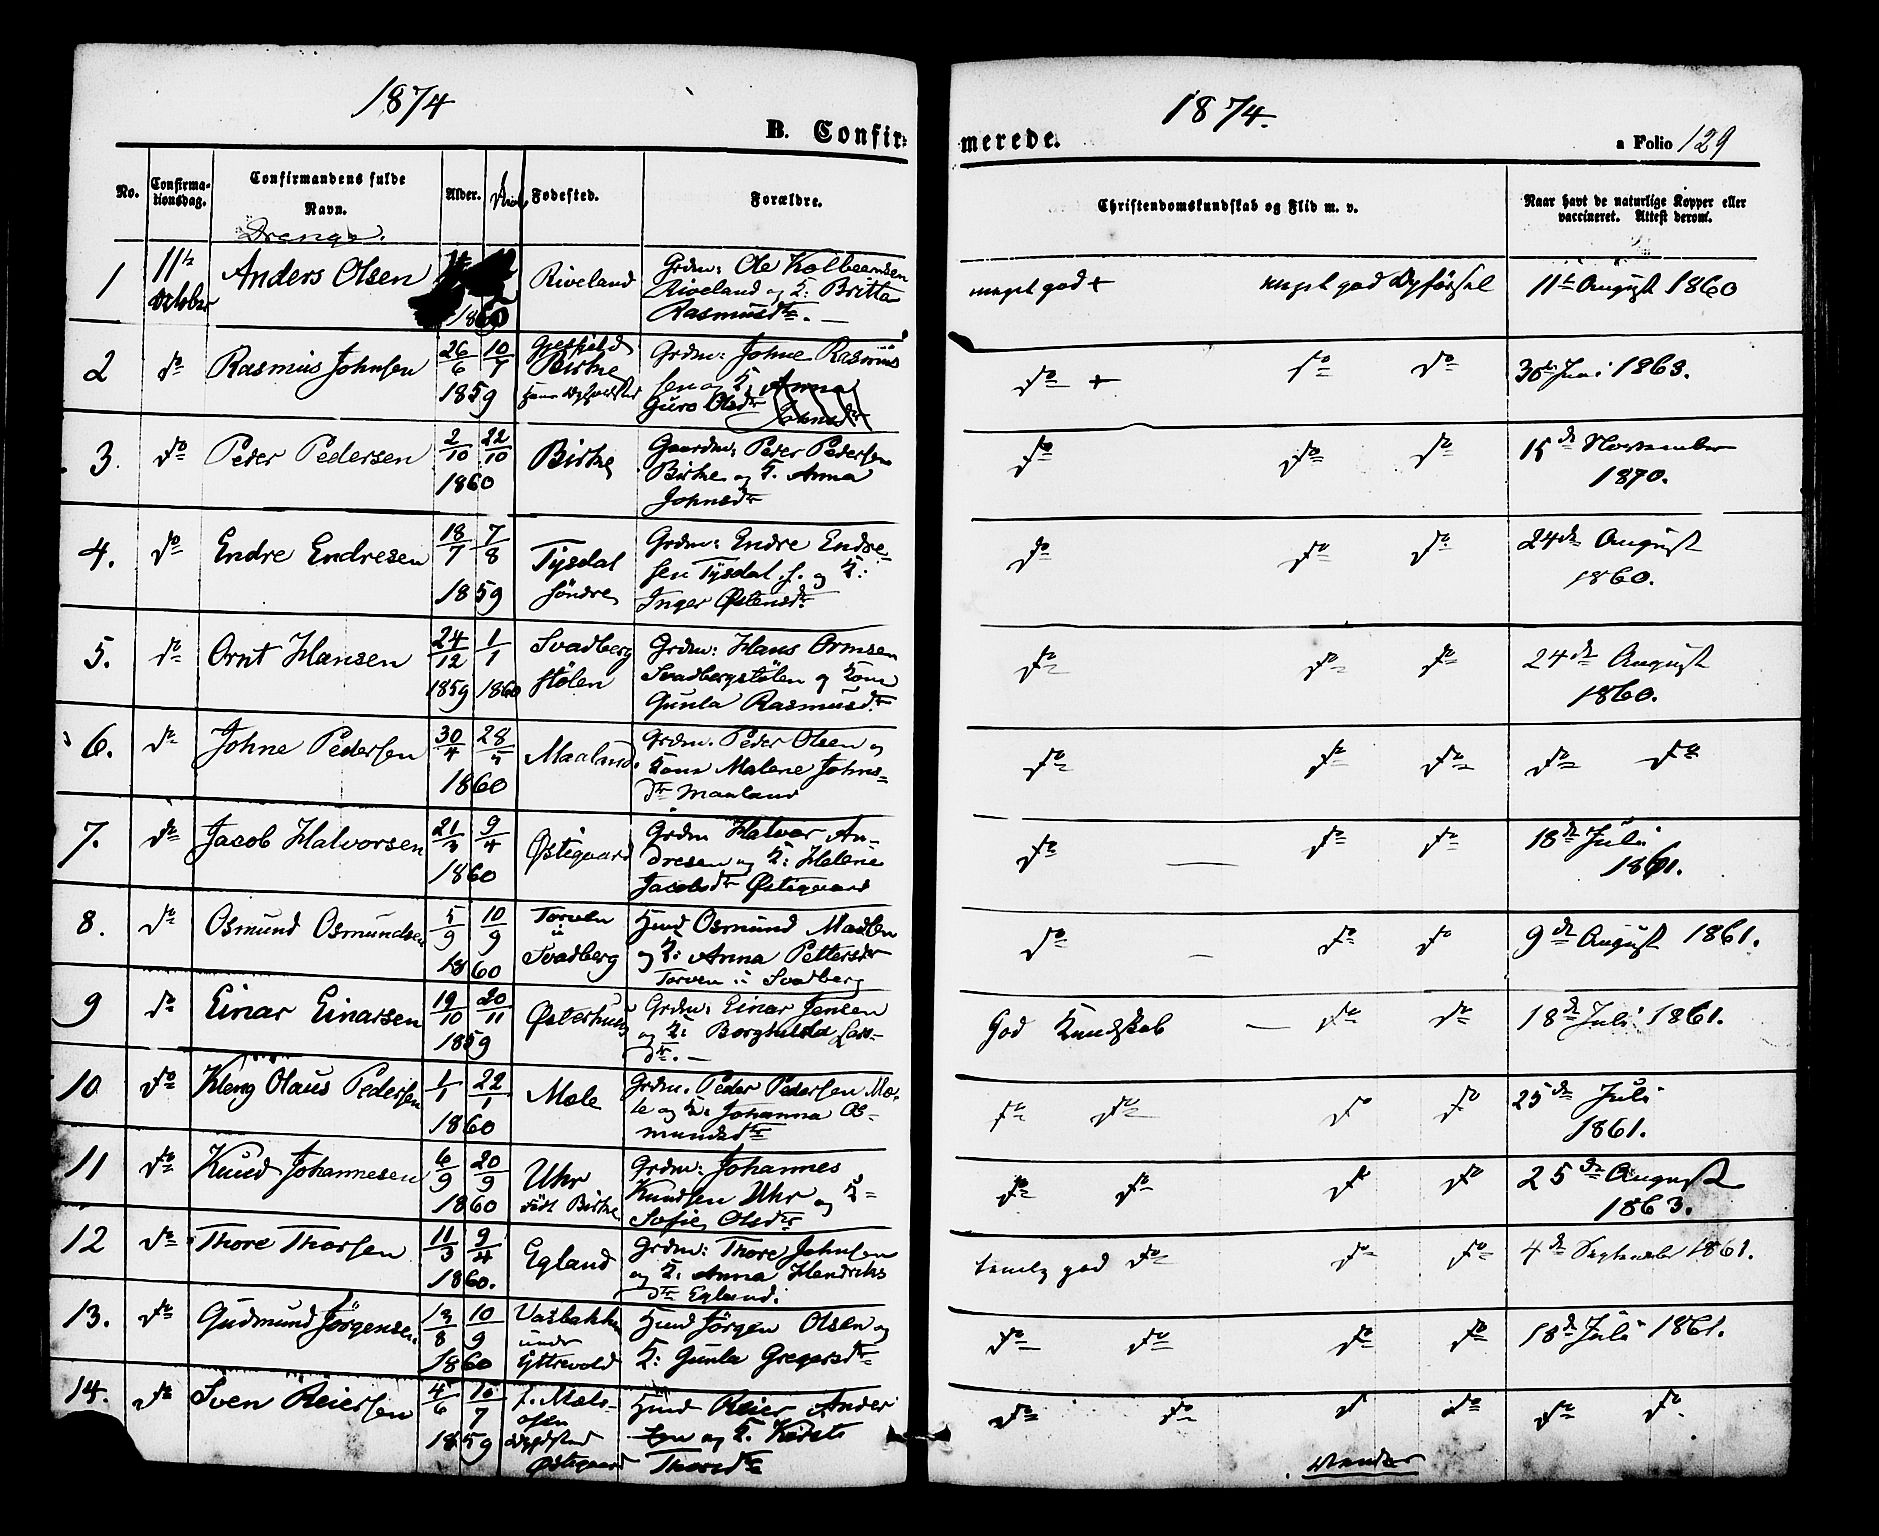 1874
B. Confir-
No.
Confirma-
tionsdag.
Confirmandens fulde
Navn.
Drenge.
Alder.
Fødested.
Forældre.
1
11te
October
Anders Olsen
1860
Riveland
Grdm: Ole Kolbeensen
Riveland og K: Britta
Rasmusdtr. —
2
do
Rasmus Johnsen
26/6 10/7
1859
Birke
Grdm: Johne Rasmus
sen og K.
Guro Olsdtr
3.
do
Peder Pedersen
2/10 22/10
1860
Birke
Gaardm: Peder Pedersen
Birke og K. Anna
Johnsdtr
4.
do
Endre Endresen
18/7 7/8
1859
Tysdal
søndre
Grdm: Endre Endre-
sen Tysdal s. og K:
Inger Østensdtr
5.
do
Ornt Hansen
24/12 1/1
1859 1860
Svadberg
stølen
Grdm: Hans Ormsen
Svadbergstølen og Kone
Gunla Rasmusdtr
6.
do
Johne Pedersen
30/4 28/5
1860
Maaland.
Grdm. Peder Olsen og
Kone Malene Johns-
dtr Maaland
7.
do
Jacob Halvorsen
21/3 9/4
1860
Østigaard
Grdm Halvor An-
dresen og K: Helene
Jacobsdtr Østigaard
8.
do
Osmund Osmundsen
5/9 10/9
1860
Torven
u
Svadberg
Husd Osmund Madlen
og K: Anna Pettersdtr
Torven u Svadberg
9
do
Einar Einarsen
19/10 20/11
1859
Østerhuus
Grdm: Einar Jensen
og K: Borghilda Lars-
dtr. —
10
do
Kleng Olaus Pedersen
1/1 22/1
1860
Mæle
Grdm. Peder Pedersen Mæ-
le og K: Johanna Os-
mundsdtr
11
do
Knud Johannesen
6/9 20/9
1860
Uhr
født Birke
Grdm: Johannes
Knudsen Uhr og K-
Sofie Olsdtr
12
do
Thore Thorsen
11/3 9/4
1860.
Egland
Grdm: Thore Johnsen
og K: Anna Hendriks
dtr Egland.
13.
do
Gudmund Jørgensen
13/8 10/9
1860
Vasbakken
under
Yttrevold
Husd Jørgen Olsen og
K: Gunla Gregersdtr
14.
do
Sven Reiersen
4/6 10/7
1859
Østigaard
Husd Reier Ander
sen og K.
Thoresdtr
1874.
merede.
a Folio 129
Christendomskundskab og Flid m. v.
Naar havt de naturlige Kopper eller
vaccineret. Attest derom.
meget god + meget god Opførsel
11te August 1860
do + do do
30te Juni 1863.
do do do
15de November
1870.
do do do
24de August
1860.
do do do
24de August
1860.
do do do
do do
do — do do
18de Juli
1861.
do — do do
9de August 1861.
God Kundskab — do do
18de Juli 1861.
do do do do
25de Juli
1861.
do do do do
25de August
1863.
temlig god do do do
4de September 1861.
do do do do
18de Juli 1861.
do do do do
do do
Vender